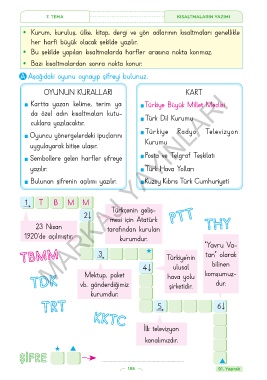 7. TEMA
KISALTMALARIN YAZIMI
• Kurum, kuruluş, ülke, kitap, dergi ve yön adlarının kısaltmaları genellikle
her harfi büyük olacak şekilde yapılır.
• Bu şekilde yapılan kısaltmalarda harfler arasına nokta konmaz.
• Bazı kısaltmalardan sonra nokta konur.
A Aşağıdaki oyunu oynayıp şifreyi bulunuz.
OYUNUN KURALLARI
Kartta yazan kelime, terim ya
da özel adın kısaltmaları kutu-
cuklara yazılacaktır.
Oyuncu yönergelerdeki ipuçlarını
uygulayarak bitişe ulaşır.
Sembollere gelen harfler şifreye
yazılır.
Bulunan şifrenin açılımı yazılır.
KART
Türkiye Büyük Millet Meclisi
Türk Dil Kurumu
Türkiye Radyo Televizyon
Kurumu
Posta ve Telgraf Teşkilatı
Türk Hava Yolları
Kuzey Kıbrıs Türk Cumhuriyeti
1. T B M M
2↓
23 Nisan
1920'de açılmıştır.
Türkçenin geliş-
mesi için Atatürk
tarafından kurulan
kurumdur.
PTT
THY
TBMM
3.
4↓
Türkiye'nin
ulusal
hava yolu
şirketidir.
"Yavru Va-
tan" olarak
bilinen
komşumuz-
dur.
TDK
Mektup, paket
vb. gönderdiğimiz
kurumdur.
TRT
KKTC
5.
6↓
İlk televizyon
kanalımızdır.
ŞİFRE
MARKAJ YAYINLARI
186
91. Yaprak